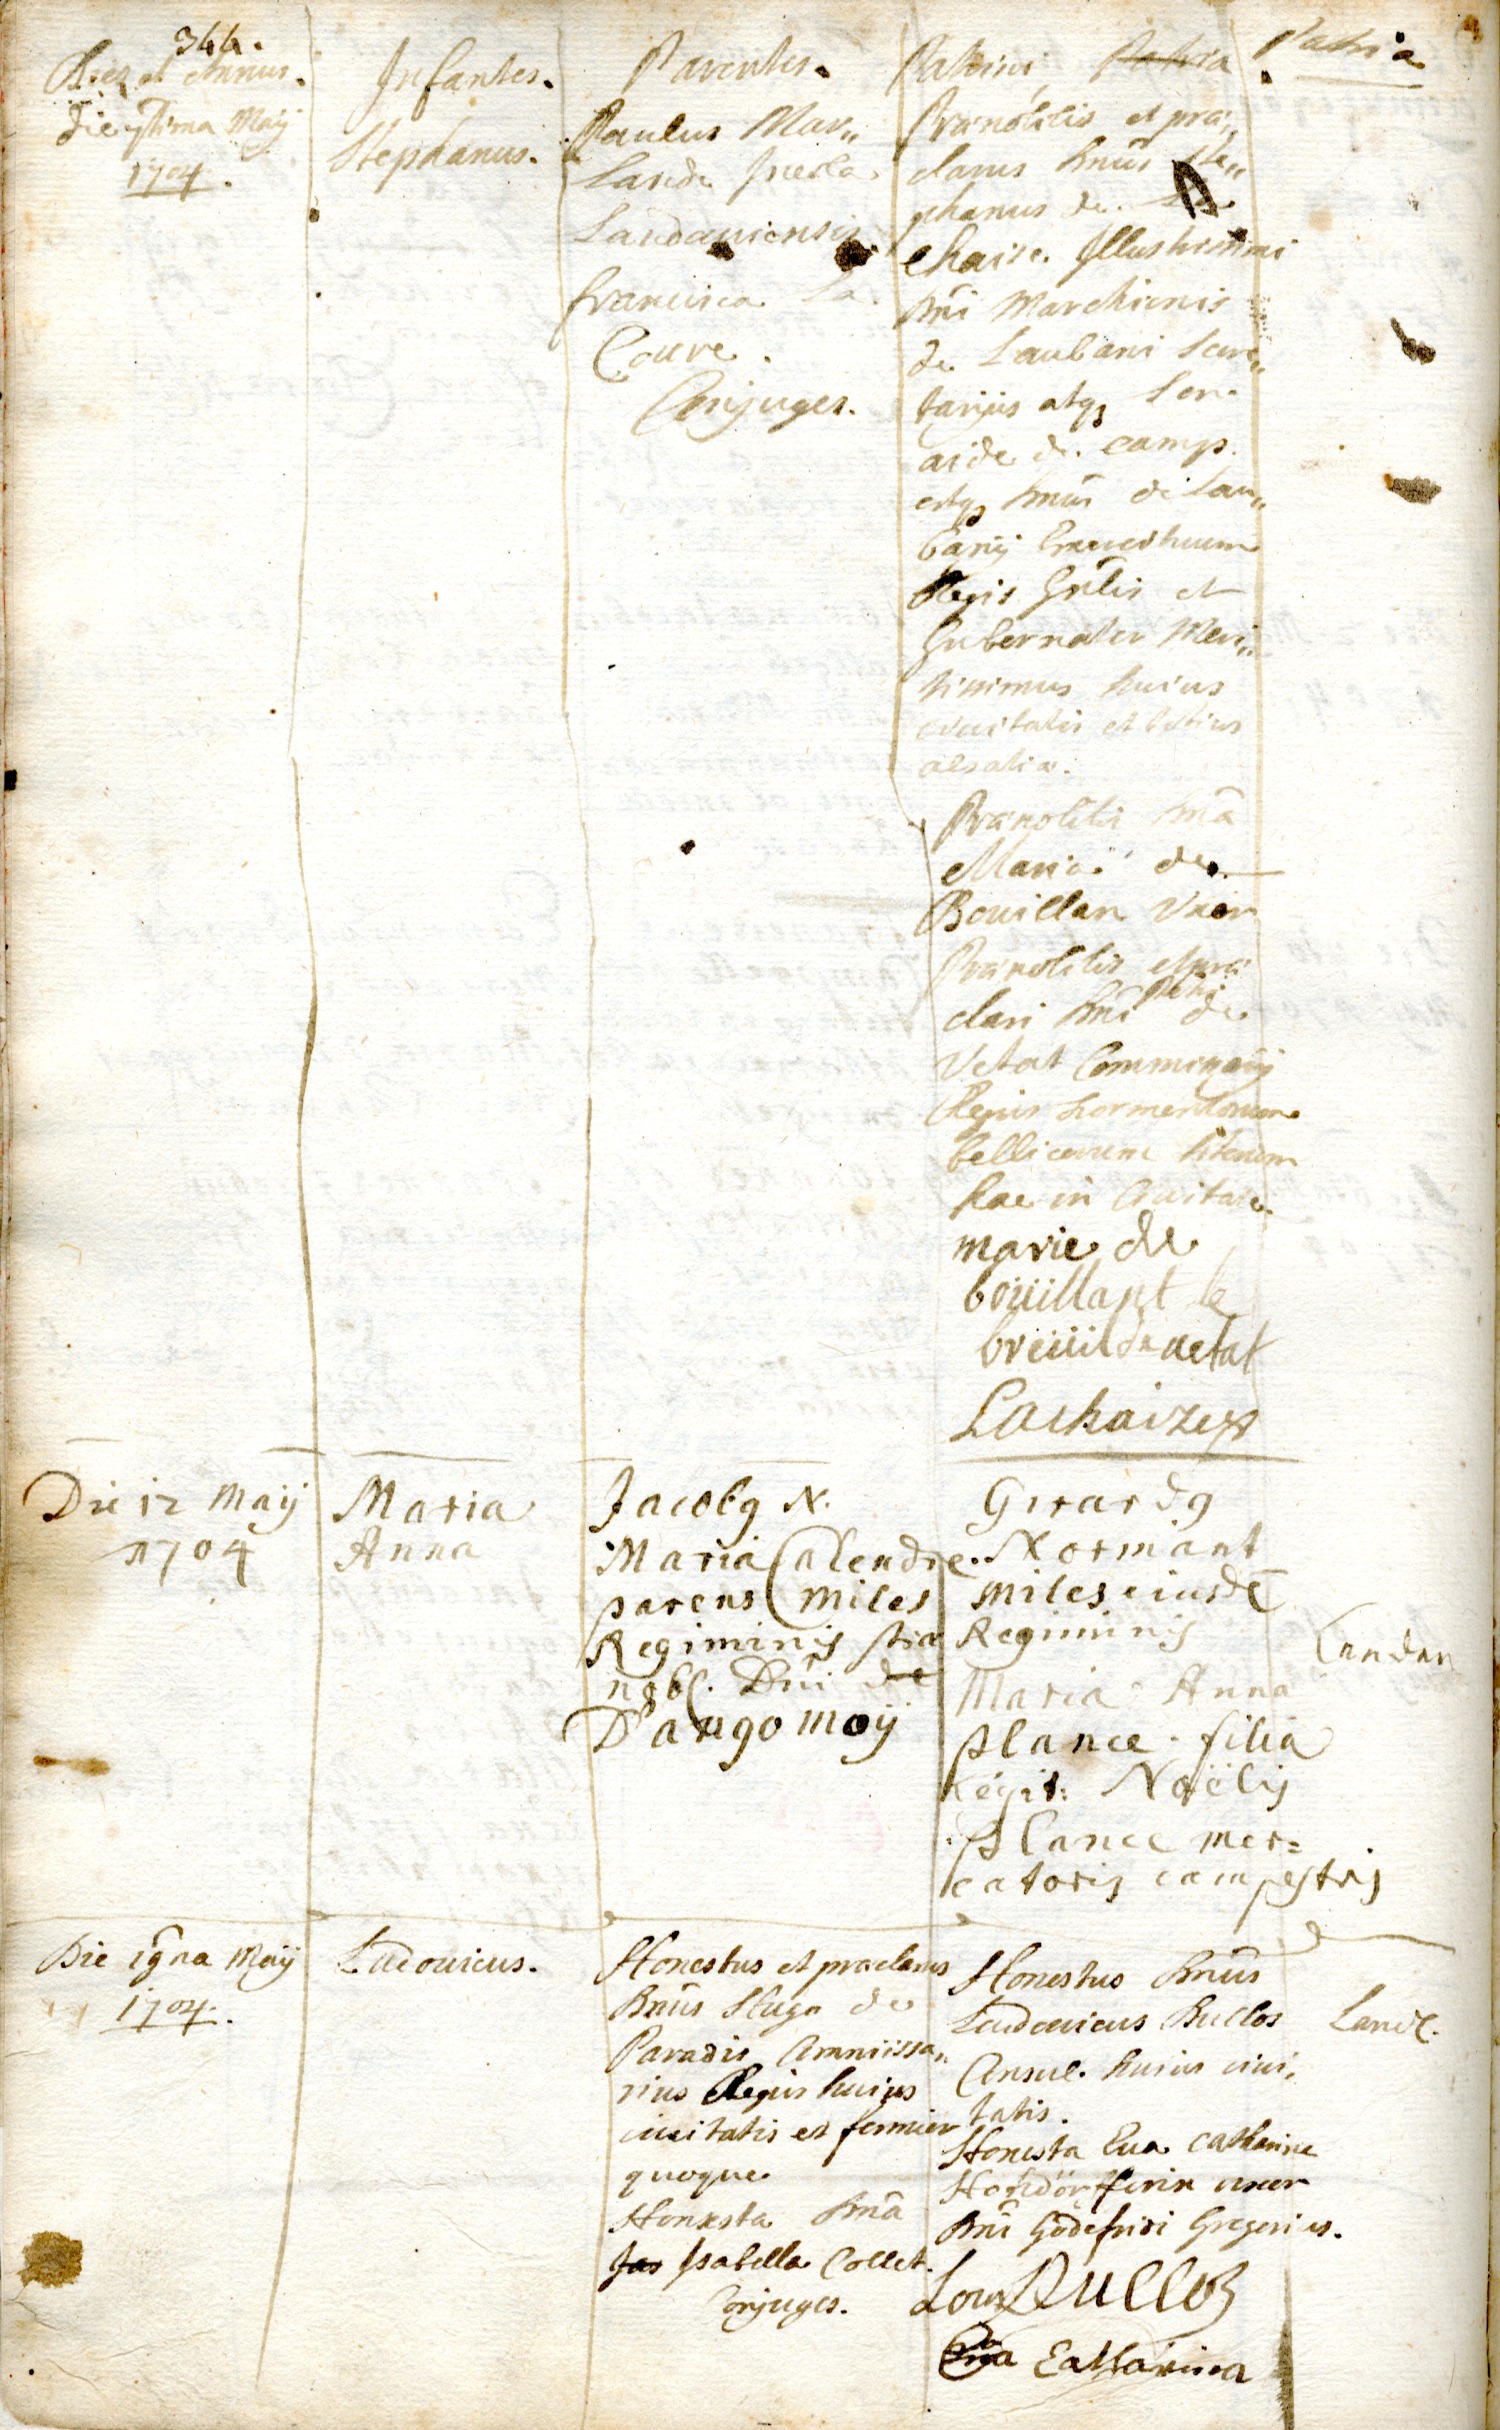 344.
Dies et Annus.
Infantes.
Parentes.
Patrini, Patria
Patria
Die 7tima Maij
1704.
Stephanus.
Paulus Mar„
Incola
Landauiensis
francisca La
Coure.
Conjuges.
Prænobilis et præ„
clarus Dnus Ste„
phanus de La
Chaise. Illustrissimi
Dni Marchionis
de Laubani Secre„
tarius atq3
aide de camp.
atq3 Dnus de Lau„
banij Exercituum
Regis Gnlis et
Gubernator Meri„
tissimus huius
ciuitatis et totius
alsatiæ.
Prænobilis Dna
Maria de
Bouillan Uxor
Prænobilis et præ
clari Dni de
Vetat Commissarij
Regis tormentorum
bellicorum
hac in Ciuitate.
marie de
boüillant le
breüil de uetat
Lachaize
Die 12 Maij
1704
Maria
Anna
Jacob9 N.
Maria Calendre.
parens (Miles
Regiminis
nobl. Dni de
D'augo moij
Girard9
Normant
Miles eiusdē
Regiminis
Maria Anna
plance filia
legit: Noëlis
Plance mer=
catoris campestris
Landau
Die 19na Maij
1704.
Ludouicus.
Honestus et præclarus
Dnus Hugo de
Paradis Commissa„
rius Regis huius
ciuitatis et fermier
quoque
Honesta Dna
Jas Isabella Collet.
Conjuges.
Honestus Dnus
Ludouicus Bullos
Consul. huius ciui„
tatis.
Honesta Eua Catharina
uxor
Dni Godefridi Gregorius.
Land.
Louis Bullos
Eua Catharina